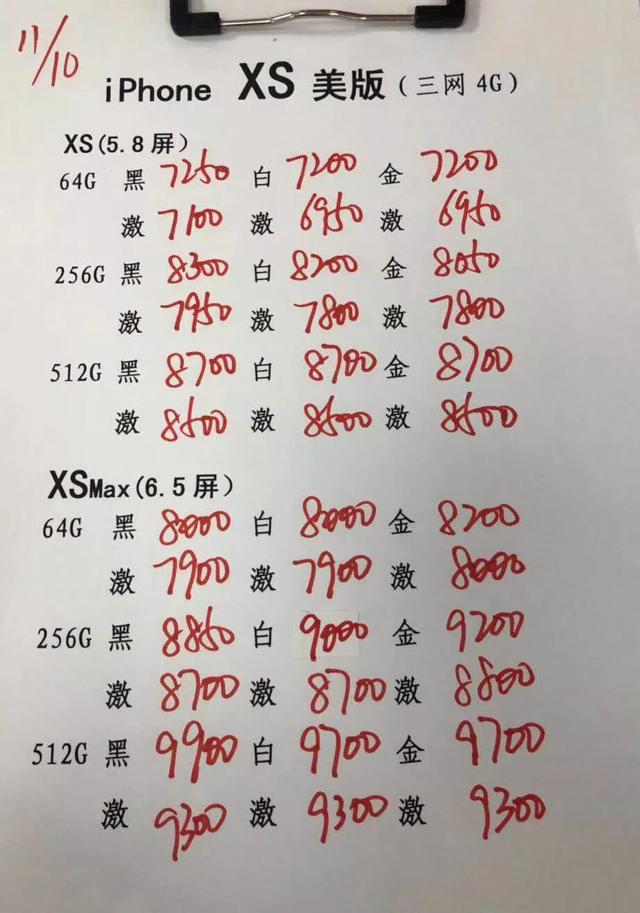 11/10
iPhone XS 美版(三网 4G)
XS(5.8屏)
64G 黑 7250 白 7200 金 7200
激 7100 激 6950 激 6950
256G 黑 8300 白 8200 金 8050
激 7950 激 7800 激 7800
512G 黑 8700 白 8700 金 8700
激 8500 激 8500 激 8500
XSMax(6.5屏)
64G 黑 8000 白 8000 金 8200
激 7900 激 7900 激 8000
256G 黑 8850 白 9000 金 9200
激 8700 激 8700 激 8800
512G 黑 9900 白 9700 金 9700
激 9300 激 9300 激 9300